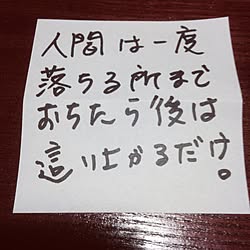 人間は一度
落ちる所まで
おちたら後は
這い上がるだけ。